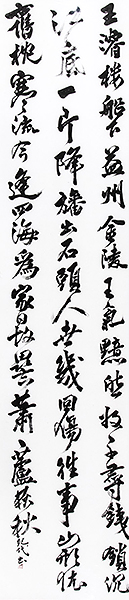 王濬樓船下益州金陵王氣黯然收千尋鐵鎖沈
江底一片降旛出石頭人世幾回傷往事山形依
舊枕寒流今逢四海爲家日故壘蕭蕭蘆荻秋